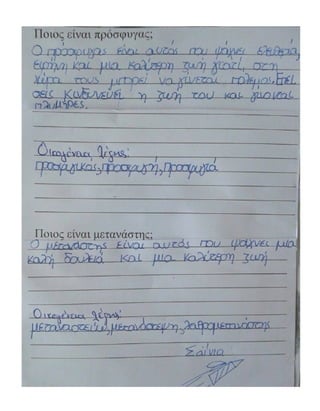 Ποιος είναι πρόσφυγας;
Ο πρόσφυγας είναι αυτός που ψάχνει ελευθερία,
ειρήνη και μια καλύτερη ζωή γιατί, στη
χώρα τους μπορεί να γίνεται πόλεμος. Επί
σεις κινδυνεύει η ζωή του και γίνονται
πλημύρες.
Οικογένεια λέξης:
προσφυγικός, προσφυγή, προσφυγιά
Ποιος είναι μετανάστης;
Ο μετανάστης είναι αυτός που ψάχνει μια
καλή δουλειά και μια καλύτερη ζωή
Οικογένεια λέξης:
μεταναστεύω, μετανάστευση, λαθρομετανάστης